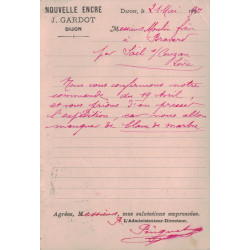 NOUVELLE ENCRE
J. GARDOT
DIJON
Dijon, le 21 Mai 189
Messieurs Moulin frères
à
par Sail s/ Couzan
Loire
Nous vous confirmons notre
commande du 19 Avril,
et vous prions d'en presser
l'expédition, car nous allons
manquer de blanc de marbre
Agréez, Messieurs, mes salutations empressées.
L'Administrateur-Directeur.